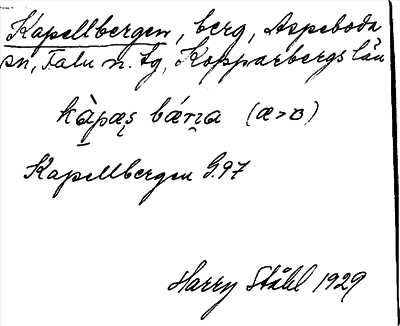 Kapellbergen, berg, Aspeboda
sn, Falu n. tg, Kopparbergs län
kàpæs bárna (æ>ɒ)
Kapellbergen G.97
Harry Ståhl 1929